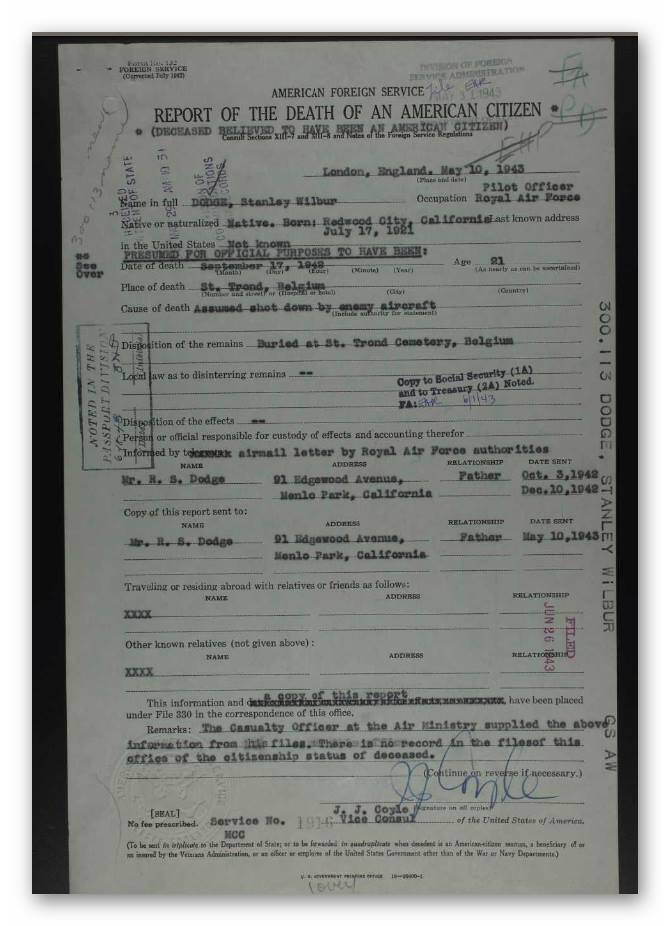 Form No. 192
FOREIGN SERVICE
(Corrected July 1942)
DIVISION OF FOREIGN
SERVICE ADMINISTRATION
MAY 31 1943
AMERICAN FOREIGN SERVICE
REPORT OF THE DEATH OF AN AMERICAN CITIZEN *
* (DECEASED BELIEVED TO HAVE BEEN AN AMERICAN CITIZEN)
Consult Sections XIII-7 and XIII-8 and Notes of the Foreign Service Regulations
London, England. May 10, 1943
(Place and date)
Pilot Officer
Name in full DODGE, Stanley Wilbur Occupation Royal Air Force
Native or naturalized Native. Born: Redwood City, California Last known address
July 17, 1921
in the United States Not known
PRESUMED FOR OFFICIAL PURPOSES TO HAVE BEEN:
See Over
Date of death September 17, 1942 Age 21
(Month) (Day) (Hour) (Minute) (Year) (As nearly as can be ascertained)
Place of death St. Trond, Belgium
(Number and street) or (Hospital or hotel) (City) (Country)
Cause of death Assumed shot down by enemy aircraft
(Include authority for statement)
Disposition of the remains Buried at St. Trond Cemetery, Belgium
Local law as to disinterring remains --
Copy to Social Security (1A)
and to Treasury (2A) Noted.
FA: EAR 6/1/43
NOTED IN THE
PASSPORT DIVISION
Disposition of the effects --
Person or official responsible for custody of effects and accounting therefor
Informed by airmail letter by Royal Air Force authorities
NAME ADDRESS RELATIONSHIP DATE SENT
Mr. R. S. Dodge 91 Edgewood Avenue, Father Oct. 3, 1942
Menlo Park, California Dec. 10, 1942
Copy of this report sent to:
NAME ADDRESS RELATIONSHIP DATE SENT
Mr. R. S. Dodge 91 Edgewood Avenue, Father May 10, 1943
Menlo Park, California
Traveling or residing abroad with relatives or friends as follows:
NAME ADDRESS RELATIONSHIP
XXXX
FILED
JUN 26 1943
Other known relatives (not given above):
NAME ADDRESS RELATIONSHIP
XXXX
a copy of this report
This information and have been placed
under File 330 in the correspondence of this office.
Remarks: The Casualty Officer at the Air Ministry supplied the above
information from his files. There is no record in the filesof this
office of the citizenship status of deceased.
(Continue on reverse if necessary.)
J. J. Coyle
(Signature on all copies)
[SEAL]
No fee prescribed. Service No. 1916 Vice Consul of the United States of America.
MCG
(To be sent in triplicate to the Department of State; or to be forwarded in quadruplicate when decedent is an American-citizen seaman, a beneficiary of or
an insured by the Veterans Administration, or an officer or employee of the United States Government other than of the War or Navy Departments.)
U. S. GOVERNMENT PRINTING OFFICE
(over)
300.113 DODGE, STANLEY WILBUR
GS AW